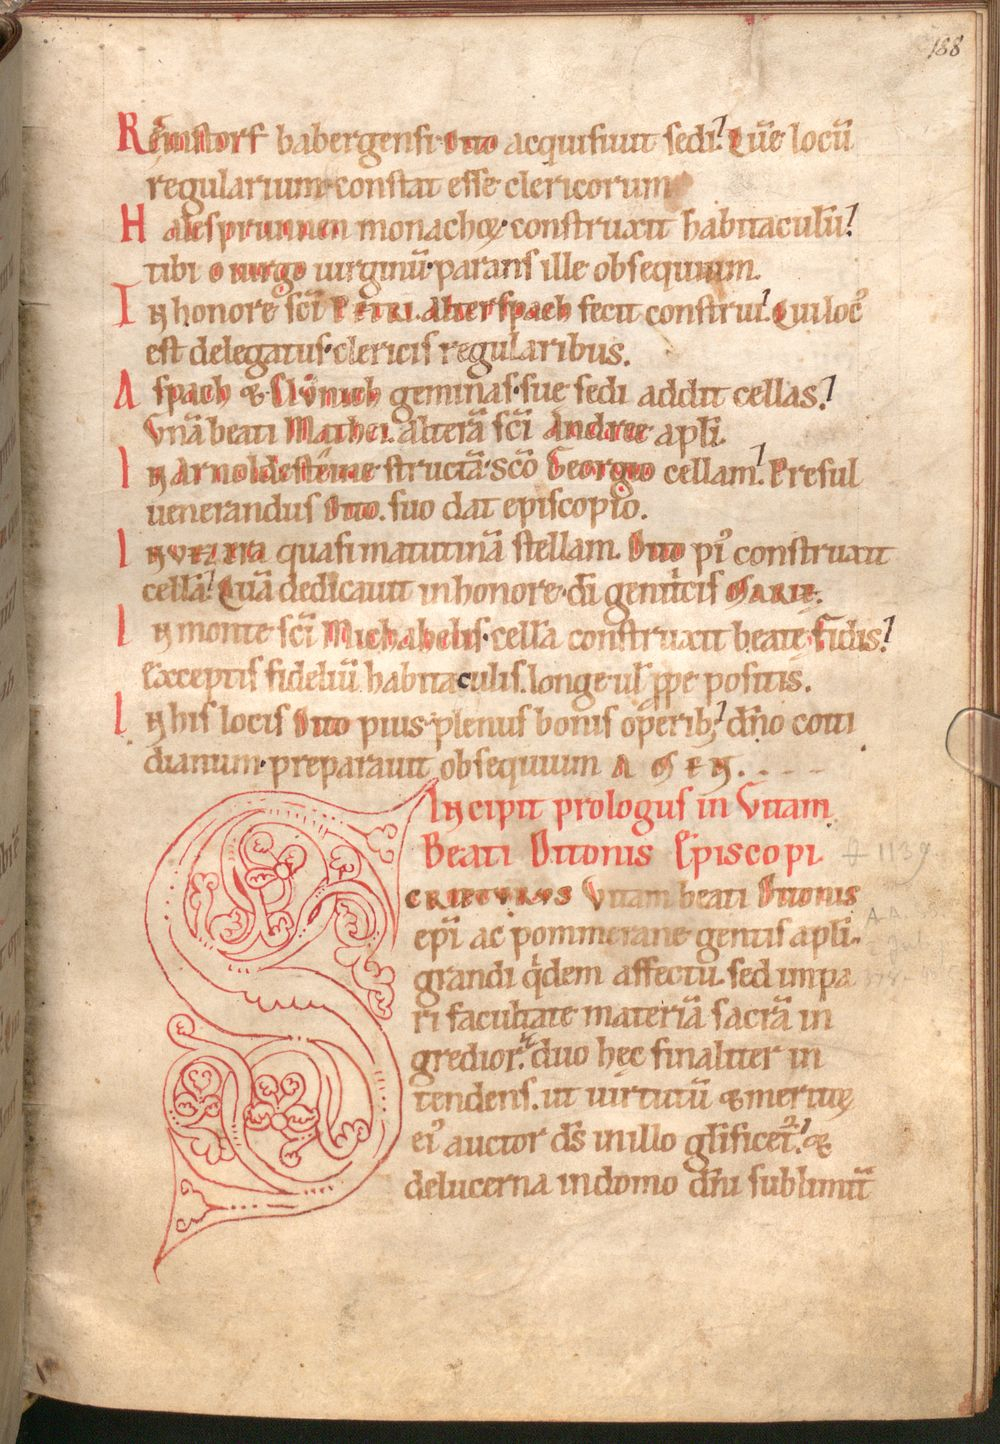 188
Rāmstorf babergensi Otto acquisiuit sedi. Quē locū
regularium constat esse clericorum
Halesprunnen monachoꝝ construxit habitaculū.
tibi o uirgo uirginū parans ille obsequium.
In honore sc̄i PETRI. Alterspach fecit construi. Qui locꝰ
est delegatus clericis regularibus.
Aspach & Mūnich geminas sue sedi addit cellas.
Vnā beati Mathei. alterā sc̄i Andree apl̄i.
In Arnoldesteine structā sc̄o Georgio cellam. Presul
uenerandus Otto. suo dat episcopio.
In quasi matutinā stellam. Otto piꝰ construxit
cellā. Quā dedicauit in honore dī genitͥcis MARIE.
In monte sc̄i Michahelis cellā construxit beatę Fidis.
Exceptis fideliū habitaculis. longe ul̄ ꝓpe positis.
In his locis Otto pius plenus bonis oꝑerib; dn̄o coti
dianum preparauit obsequium AMEN.
Incipit prologus in Vitam
Beati Ottonis Episcopi
✝ 1139.
SCRIPTVRVS Vitam beati Ottonis
ep̄i ac pommerane gentis apl̄i.
grandi qͥdem affectu. sed impa
ri facultate materiā sacrā in
gredior. duo hęc finaliter in
tendens. ut uirtutū & meritoꝝ
eiꝰ auctor ds̄ in illo gl̄ificet̄. &
de lucerna in domo dn̄i sublimit̄